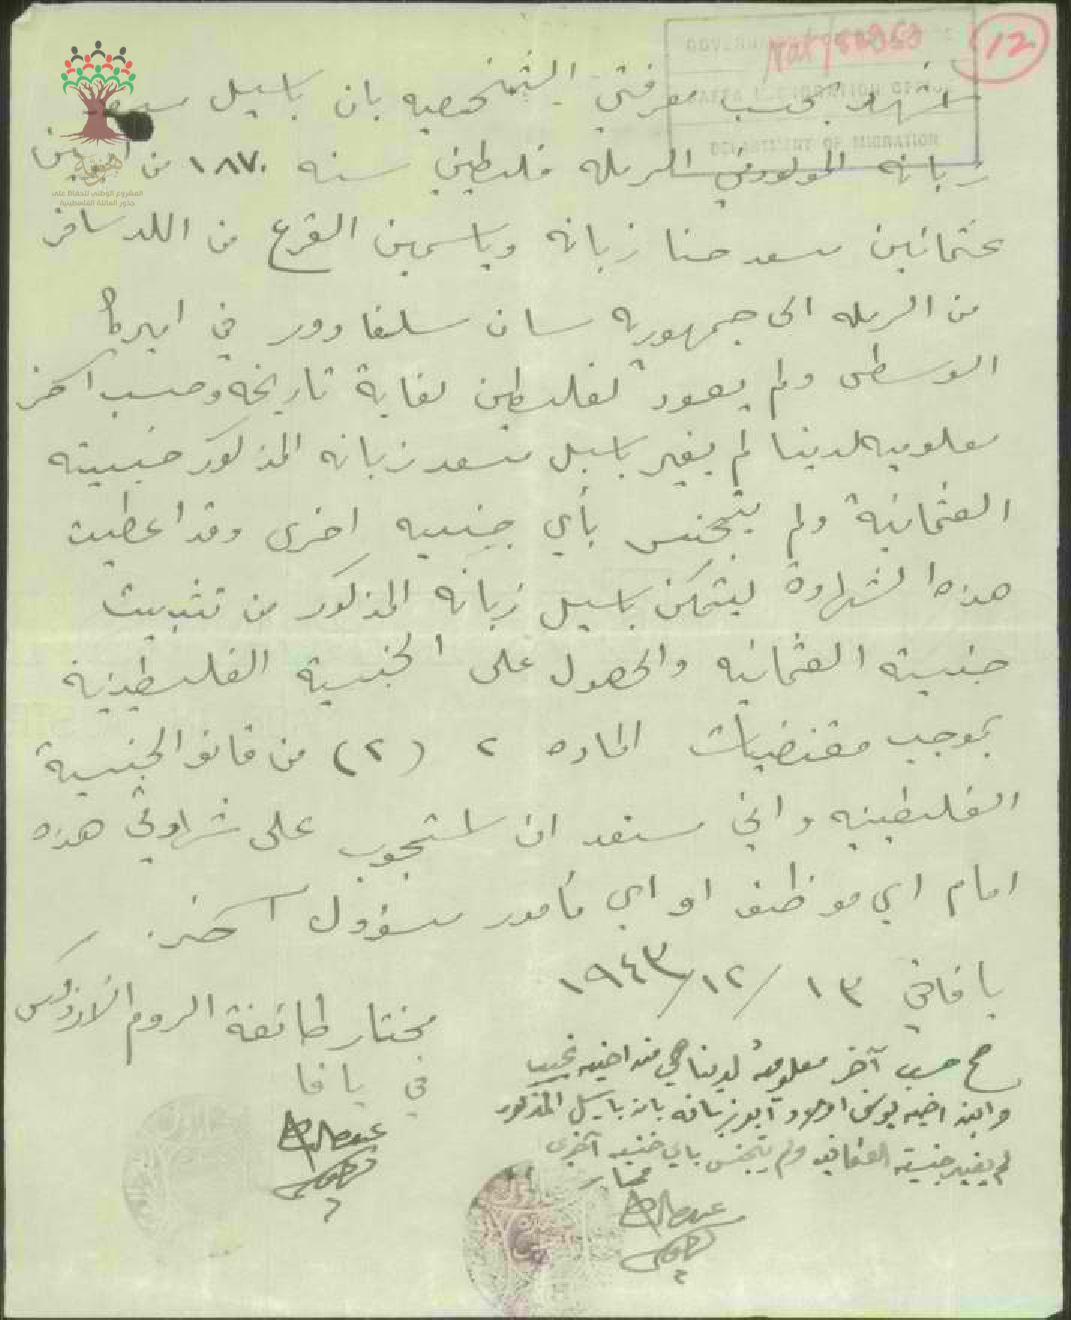 12
Nat/50353
GOVERNMENT OF PALESTINE
JAFFA IMMIGRATION OFFICE
DEPARTMENT OF MIGRATION
المشروع الوطني للحفاظ على
جذور العائلة الفلسطينية
اشهد بحسب معرفتي الشخصيه بان باسيل سعد
زبانه المولود في الرمله فلسطين سنه ١٨٧٠ من ابوين
عثمانين سعد حنا زبانه وياسمين القرع من اللد سافر
من الرمله الى جمهورية سان سلفادور في اميركا
الوسطى ولم يعود لفلسطين لغاية تاريخه وحسب آخر
معلوميه لدينا لم يغير باسيل سعد زبانه المذكور جنسيته
العثمانية ولم يتجنس بأي جنسيه اخرى وقد اعطيت
هذه الشهادة ليتمكن باسيل زبانه المذكور من تثبيت
جنسيته العثمانيه والحصول على الجنسية الفلسطينية
بموجب مقتضيات الماده ٢ (٢) من قانون الجنسية
الفلسطينيه واني مستعد ان استجوب على شهادتي هذه
امام اي موظف او اي مأمور مسؤول آخر
يافا في ١٣/١٢/١٩٤٣
مختار طائفة الروم الارثوذكس
في يافا
صح حسب آخر معلومية لدينا هي من اخيه نجيب
وابن اخيه بان باسيل المذكور
لم يغير جنسيته العثمانيه ولم يتجنس باي جنسيه آخرى
مختار